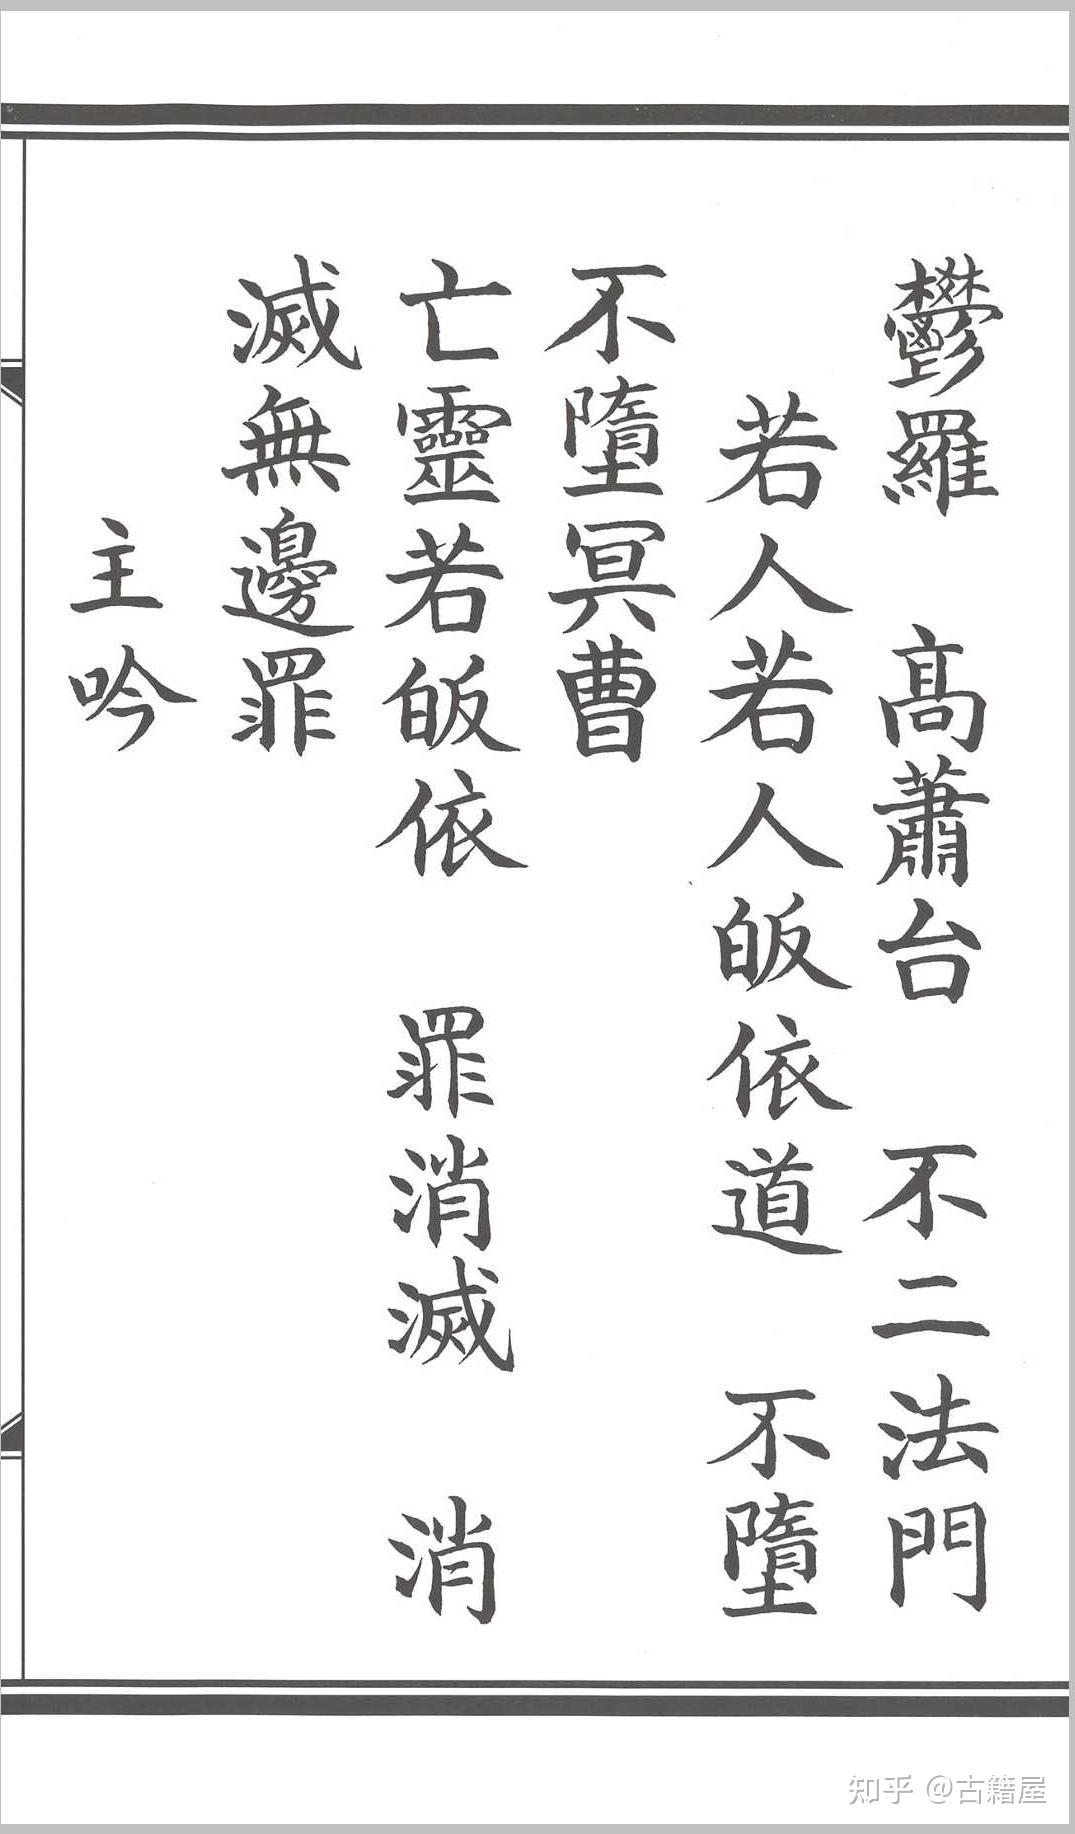 鬱羅　髙蕭台　不二法門
若人若人皈依道　不墮
不墮冥曹
亡靈若皈依　罪消滅　消
滅無邊罪
主吟
知乎 @古籍屋